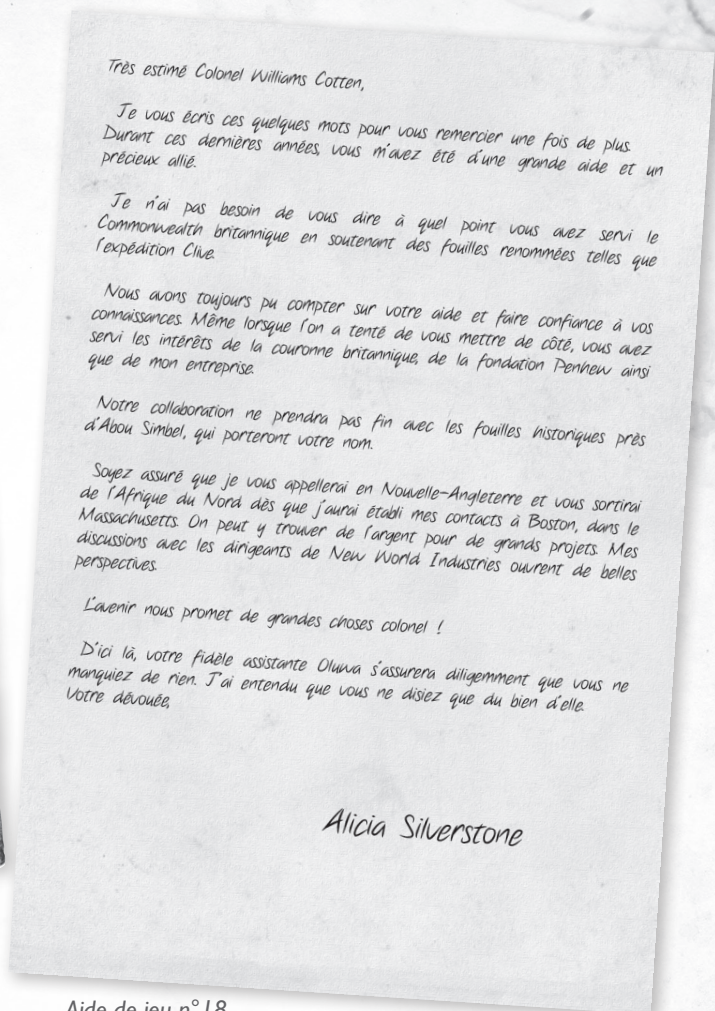 Très estimé Colonel Williams Cotten,
Je vous écris ces quelques mots pour vous remercier une fois de plus.
Durant ces dernières années, vous m'avez été d'une grande aide et un
précieux allié.
Je n'ai pas besoin de vous dire à quel point vous avez servi le
Commonwealth britannique en soutenant des fouilles renommées telles que
l'expédition Clive.
Nous avons toujours pu compter sur votre aide et faire confiance à vos
connaissances. Même lorsque l'on a tenté de vous mettre de côté, vous avez
servi les intérêts de la couronne britannique, de la fondation Penhew ainsi
que de mon entreprise.
Notre collaboration ne prendra pas fin avec les fouilles historiques près
d'Abou Simbel, qui porteront votre nom.
Soyez assuré que je vous appellerai en Nouvelle-Angleterre et vous sortirai
de l'Afrique du Nord dès que j'aurai établi mes contacts à Boston, dans le
Massachusetts. On peut y trouver de l'argent pour de grands projets. Mes
discussions avec les dirigeants de New World Industries ouvrent de belles
perspectives.
L'avenir nous promet de grandes choses colonel !
D'ici là, votre fidèle assistante Oluwa s'assurera diligemment que vous ne
manquiez de rien. J'ai entendu que vous ne disiez que du bien d'elle.
Votre dévouée,
Alicia Silverstone
Aide de jeu n°18